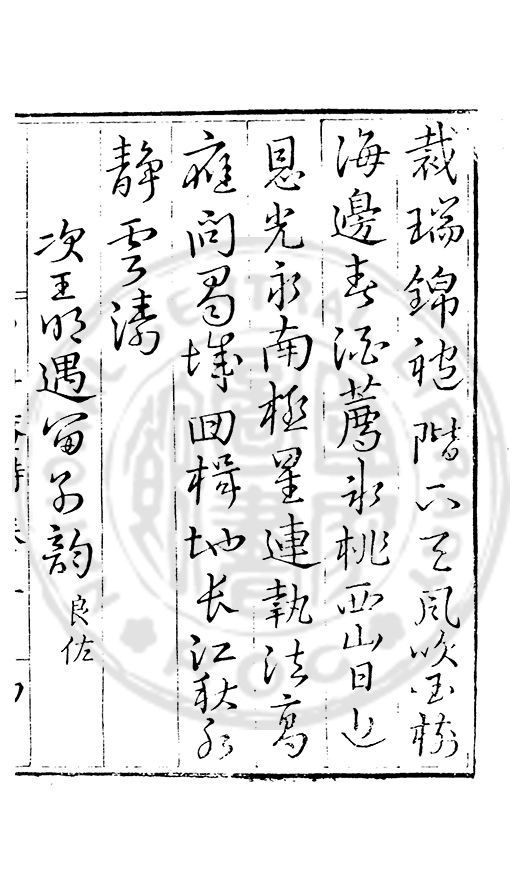 裁瑞錦袍階下天風吹玉樹
海邊春酒薦冰桃西山日近
恩光永南極星連執法高
應問蜀城回楫地長江秋水
靜雲濤
次王明遇留別韻良佐